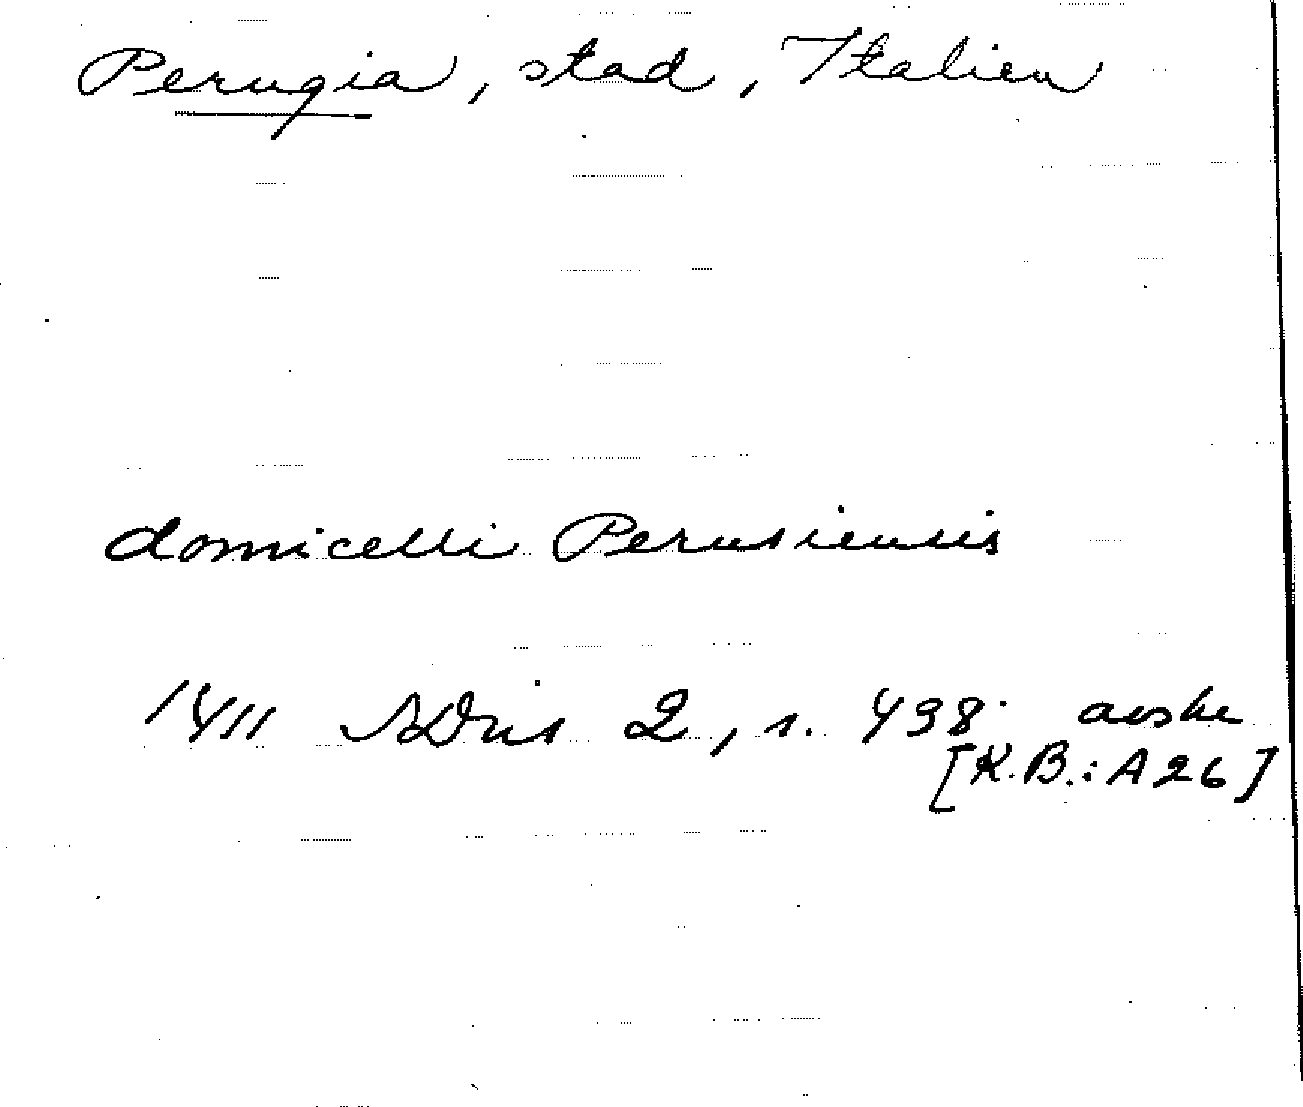 Perugia, stad, Italien
domicelli Perusiensis
1411 SDns 2, s. 438 avskr
[K.B.: A26]